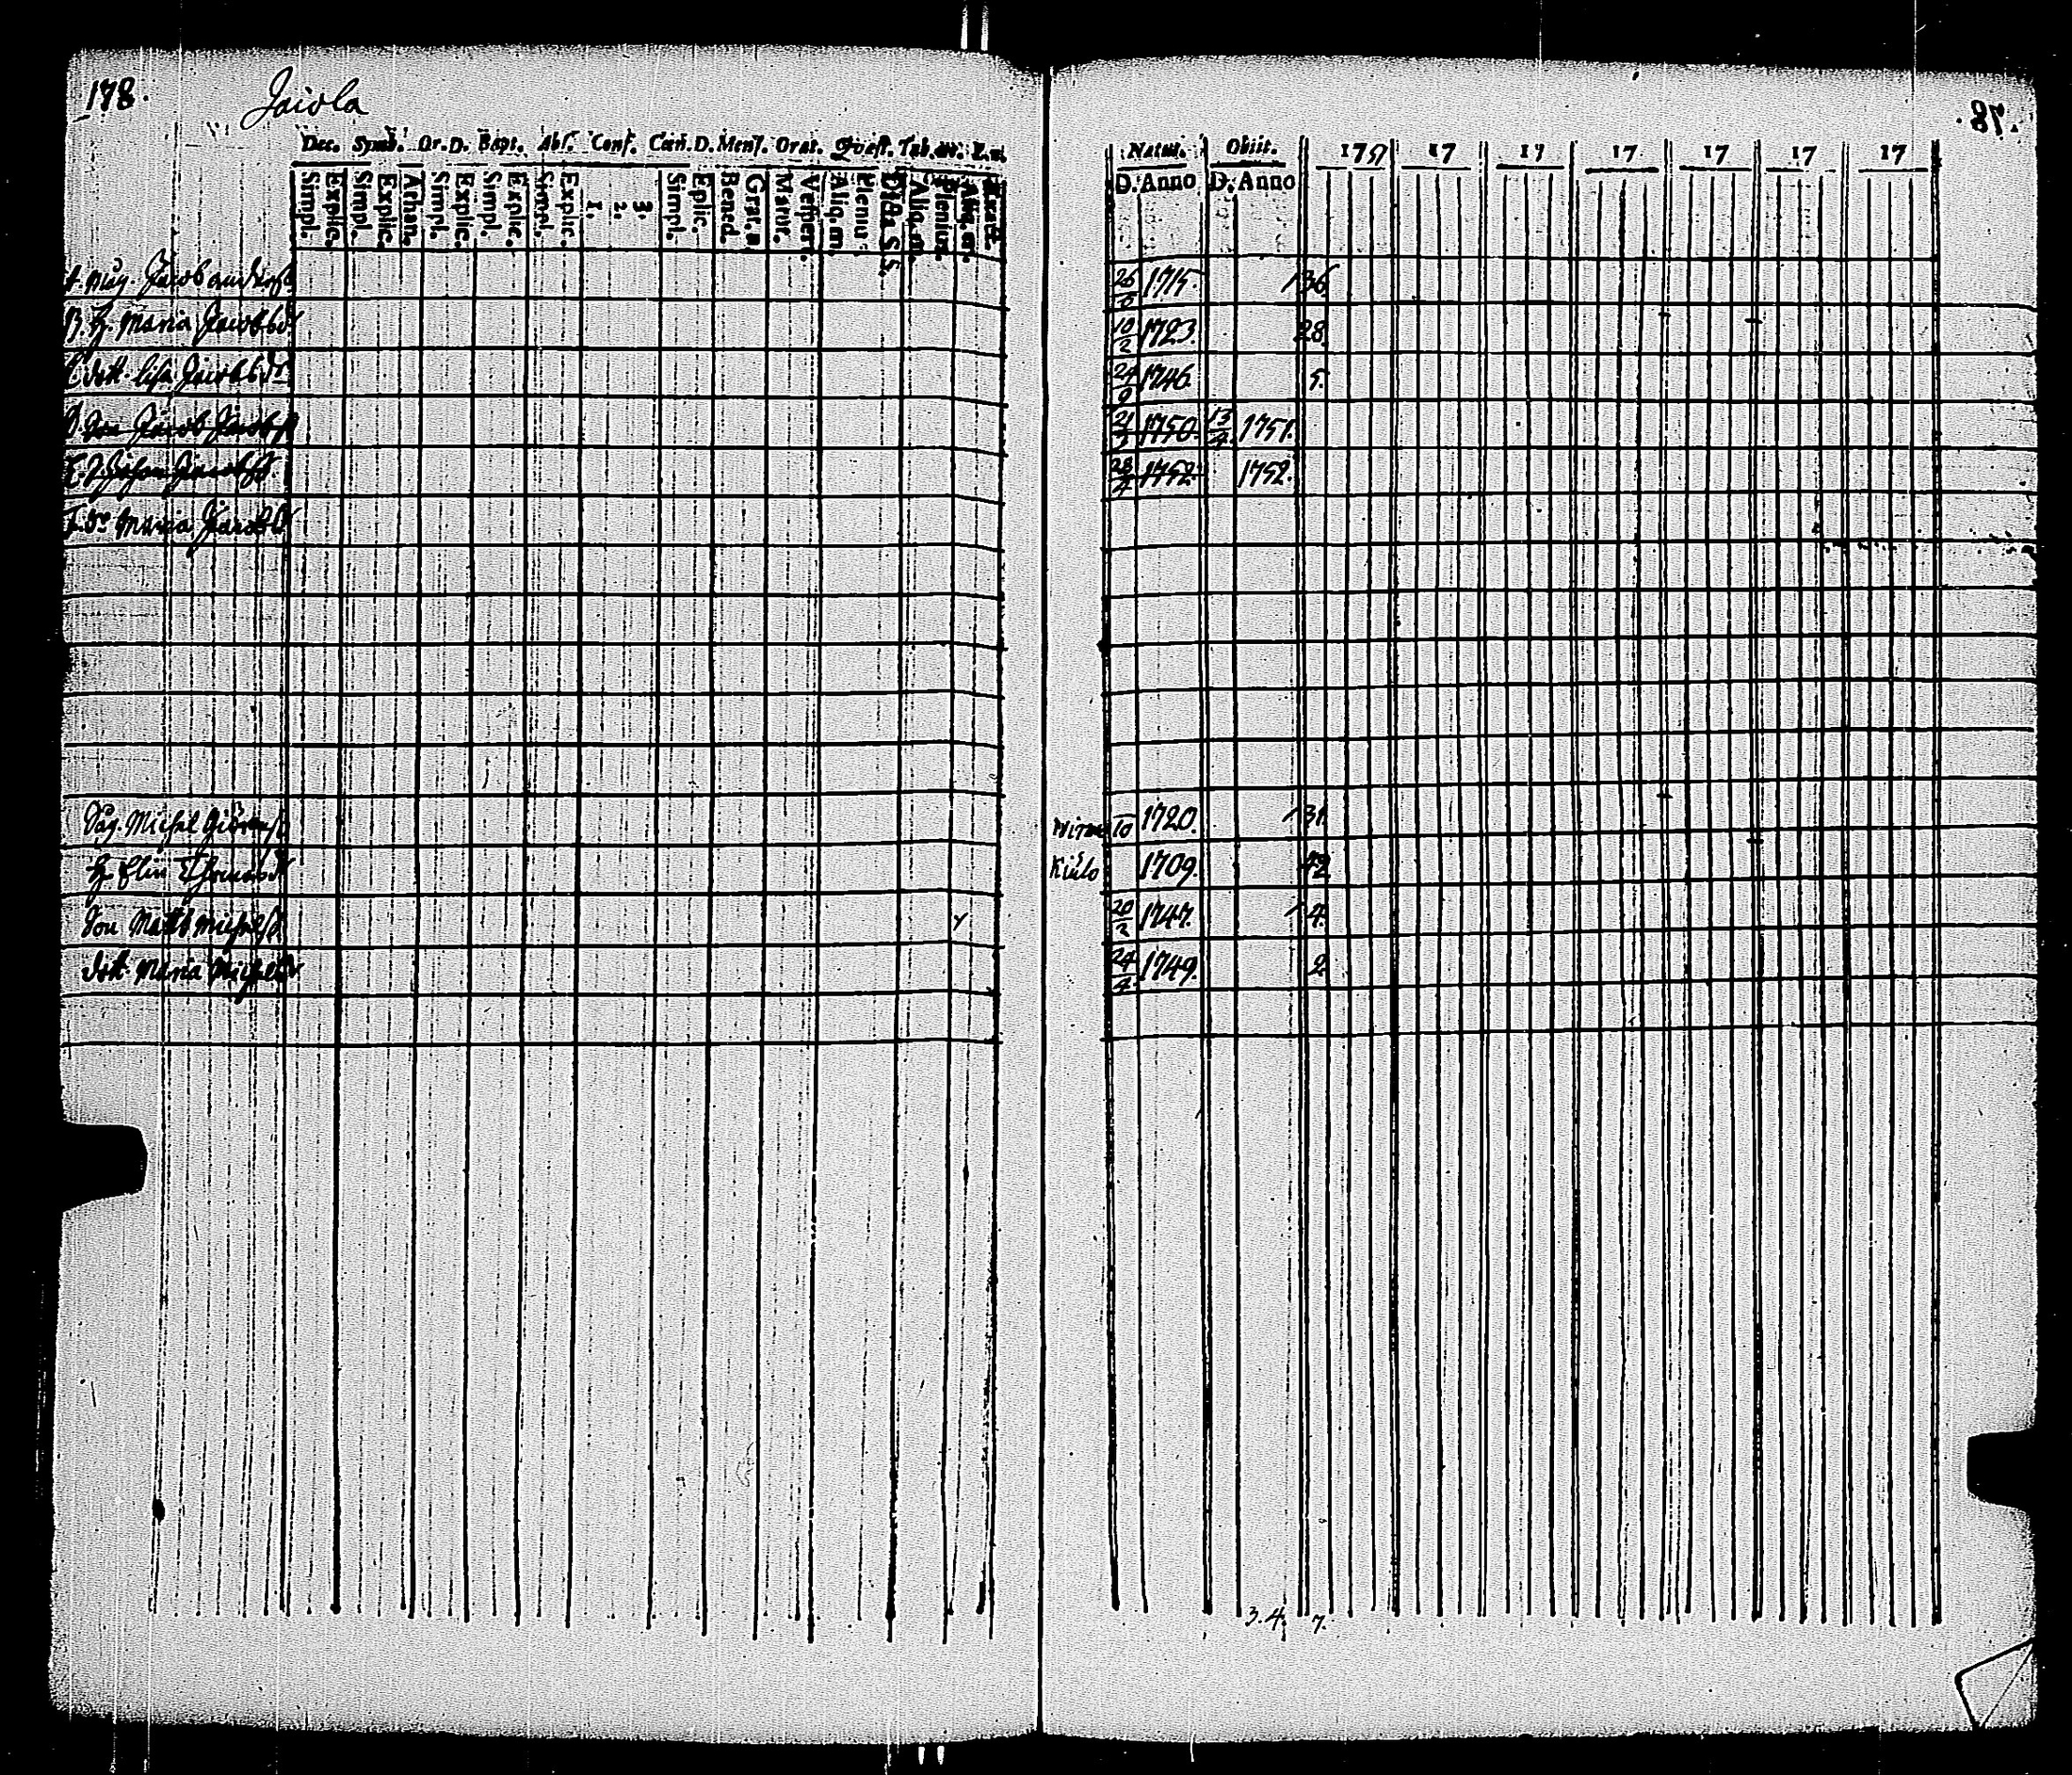 178.
Jaiola
Dec. Symb. Or. D. Bapt. Abs. Conf. Cœn. D. Mens. Orat. Quæst. Tab. œc.
Simpl. Explic. Simpl. Explic. Athan. Simpl. Explic. Simpl. Explic. Simpl. Explic. 1. 2. 3. Simpl. Explic. Bened. Grat. a Matut. Vesper. Aliq. m. Plenius Dicta S. S. Aliq. m. Plenius. Aliq. m.
A. Jacob
B. H. Maria Jacobsdr
C. dott. Lisa Jacobsdr
D. Son Jacob Jacobss
E. Johan Jacobss
F. dr Maria Jacobsdr
Michel
H. Elin Thomasdr
Son Matts Michelss
dott. Maria Michelsdr
78.
Natus. Obiit. 1751 17 17 17 17 17 17
D. Anno D. Anno
26 1715. 36.
10/2 1723. 28.
24/9 1746. 5.
21 1750. 13/4 1751.
28/4 1752. 1752.
10 1720. 31.
1709. 42.
20/2 1747. 4.
24/4 1749. 2.
3. 4. 7.